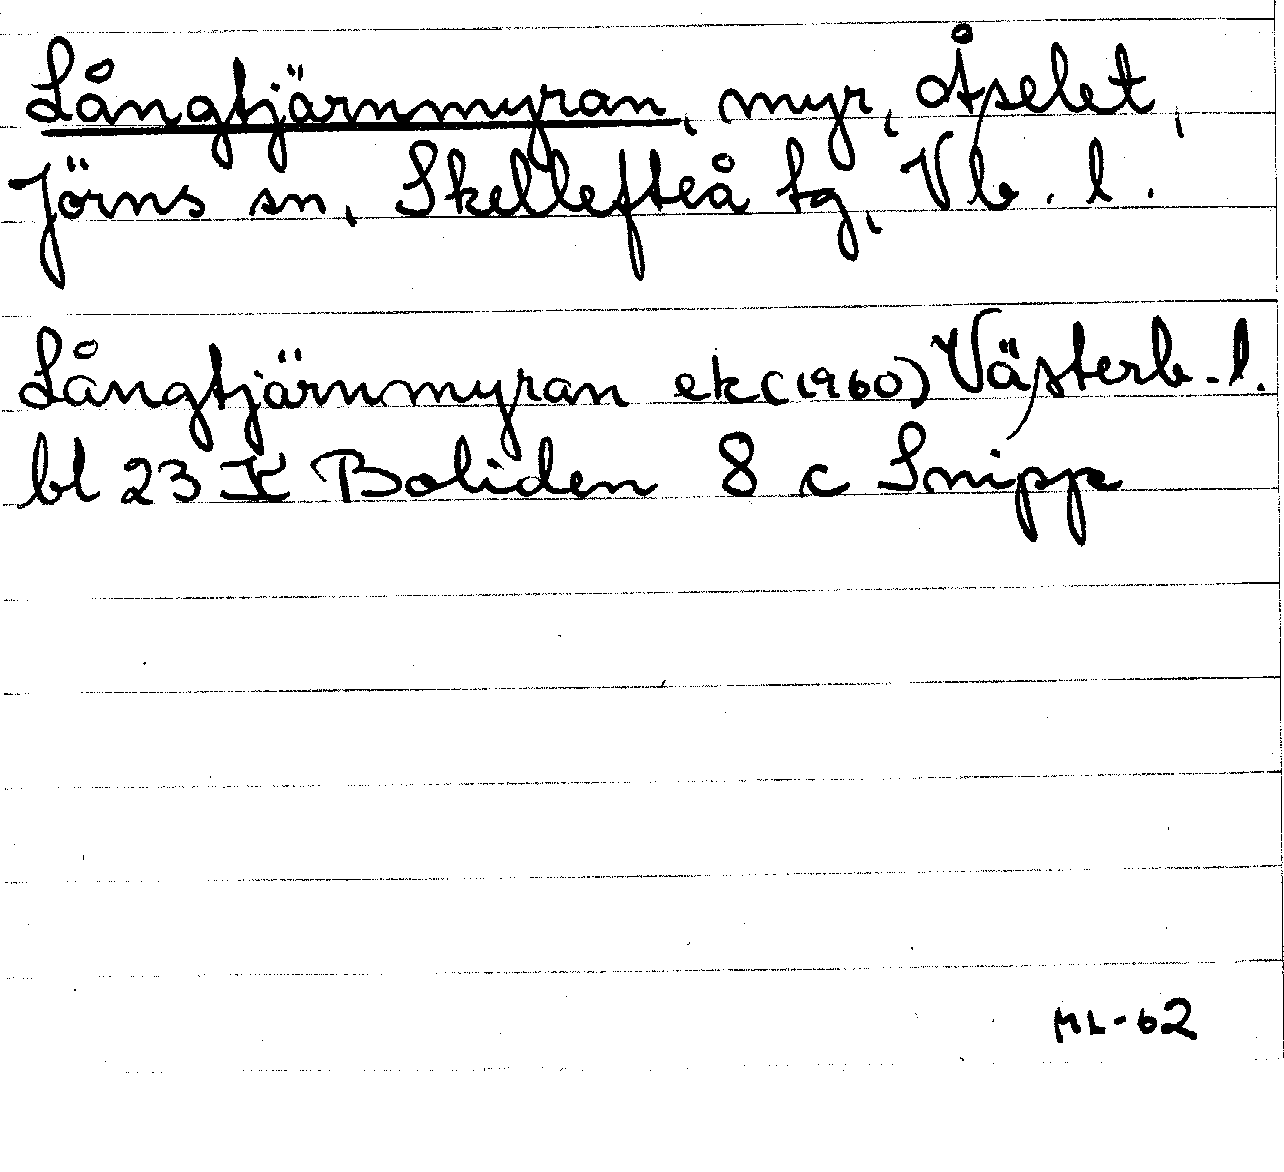 Långtjärnmyran, myr, Åselet,
Jörns sn, Skellefteå tg, Vb. l.
Långtjärnmyran ek (1960) Västerb. l.
bl 23 K Boliden 8 c Snipp
ML-62